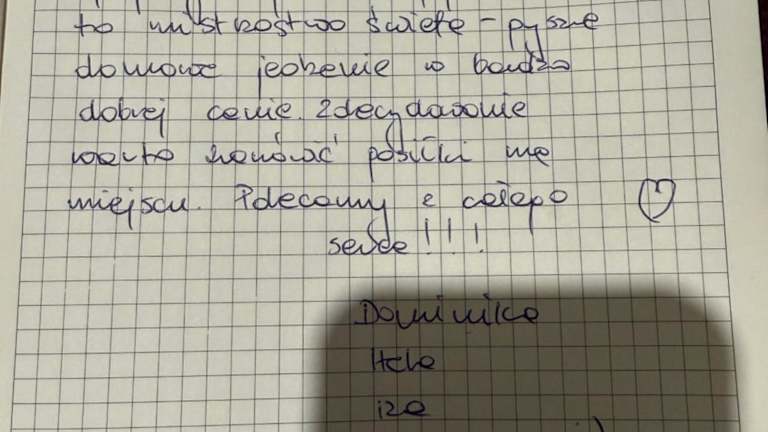 to mistrzostwo świata - pyszne
domowe jedzenie w bardzo
dobrej cenie. Zdecydowanie
warto zamówić posiłki na
miejscu. Polecamy z całego
serca!!!
Dominika
Hela
iza